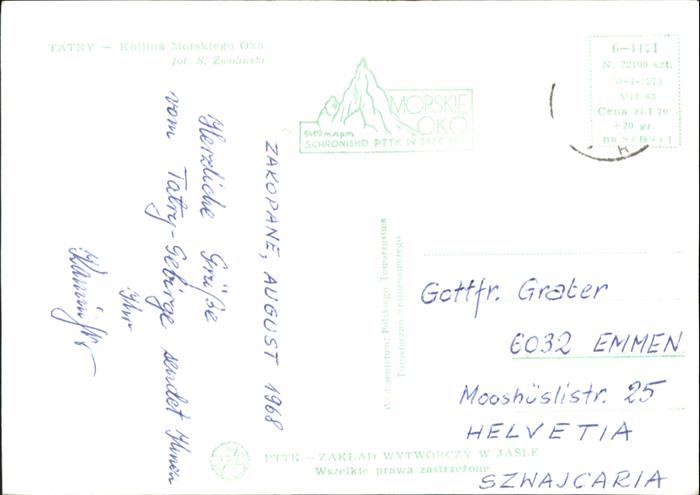 TATRY — Kotlina Morskiego Oka
fot. S. Zwoliński
MORSKIE
OKO
1410 m npm
SCHRONISKO PTTK W TATRACH
6-1421
VII 68
Cena zł 1 70
+20 gr.
ZAKOPANE, AUGUST 1968
Herzliche Grüße
vom Tatry-Gebirge sendet Ihnen
Ihr
Wydawnictwo: Polskiego Towarzystwa
Turystyczno Krajoznawczego
Gottfr. Grater
6032 EMMEN
Mooshüslistr. 25
HELVETIA
SZWAJCARIA
PTTK — ZAKŁAD WYTWÓRCZY W JAŚLE
Wszelkie prawa zastrzeżone